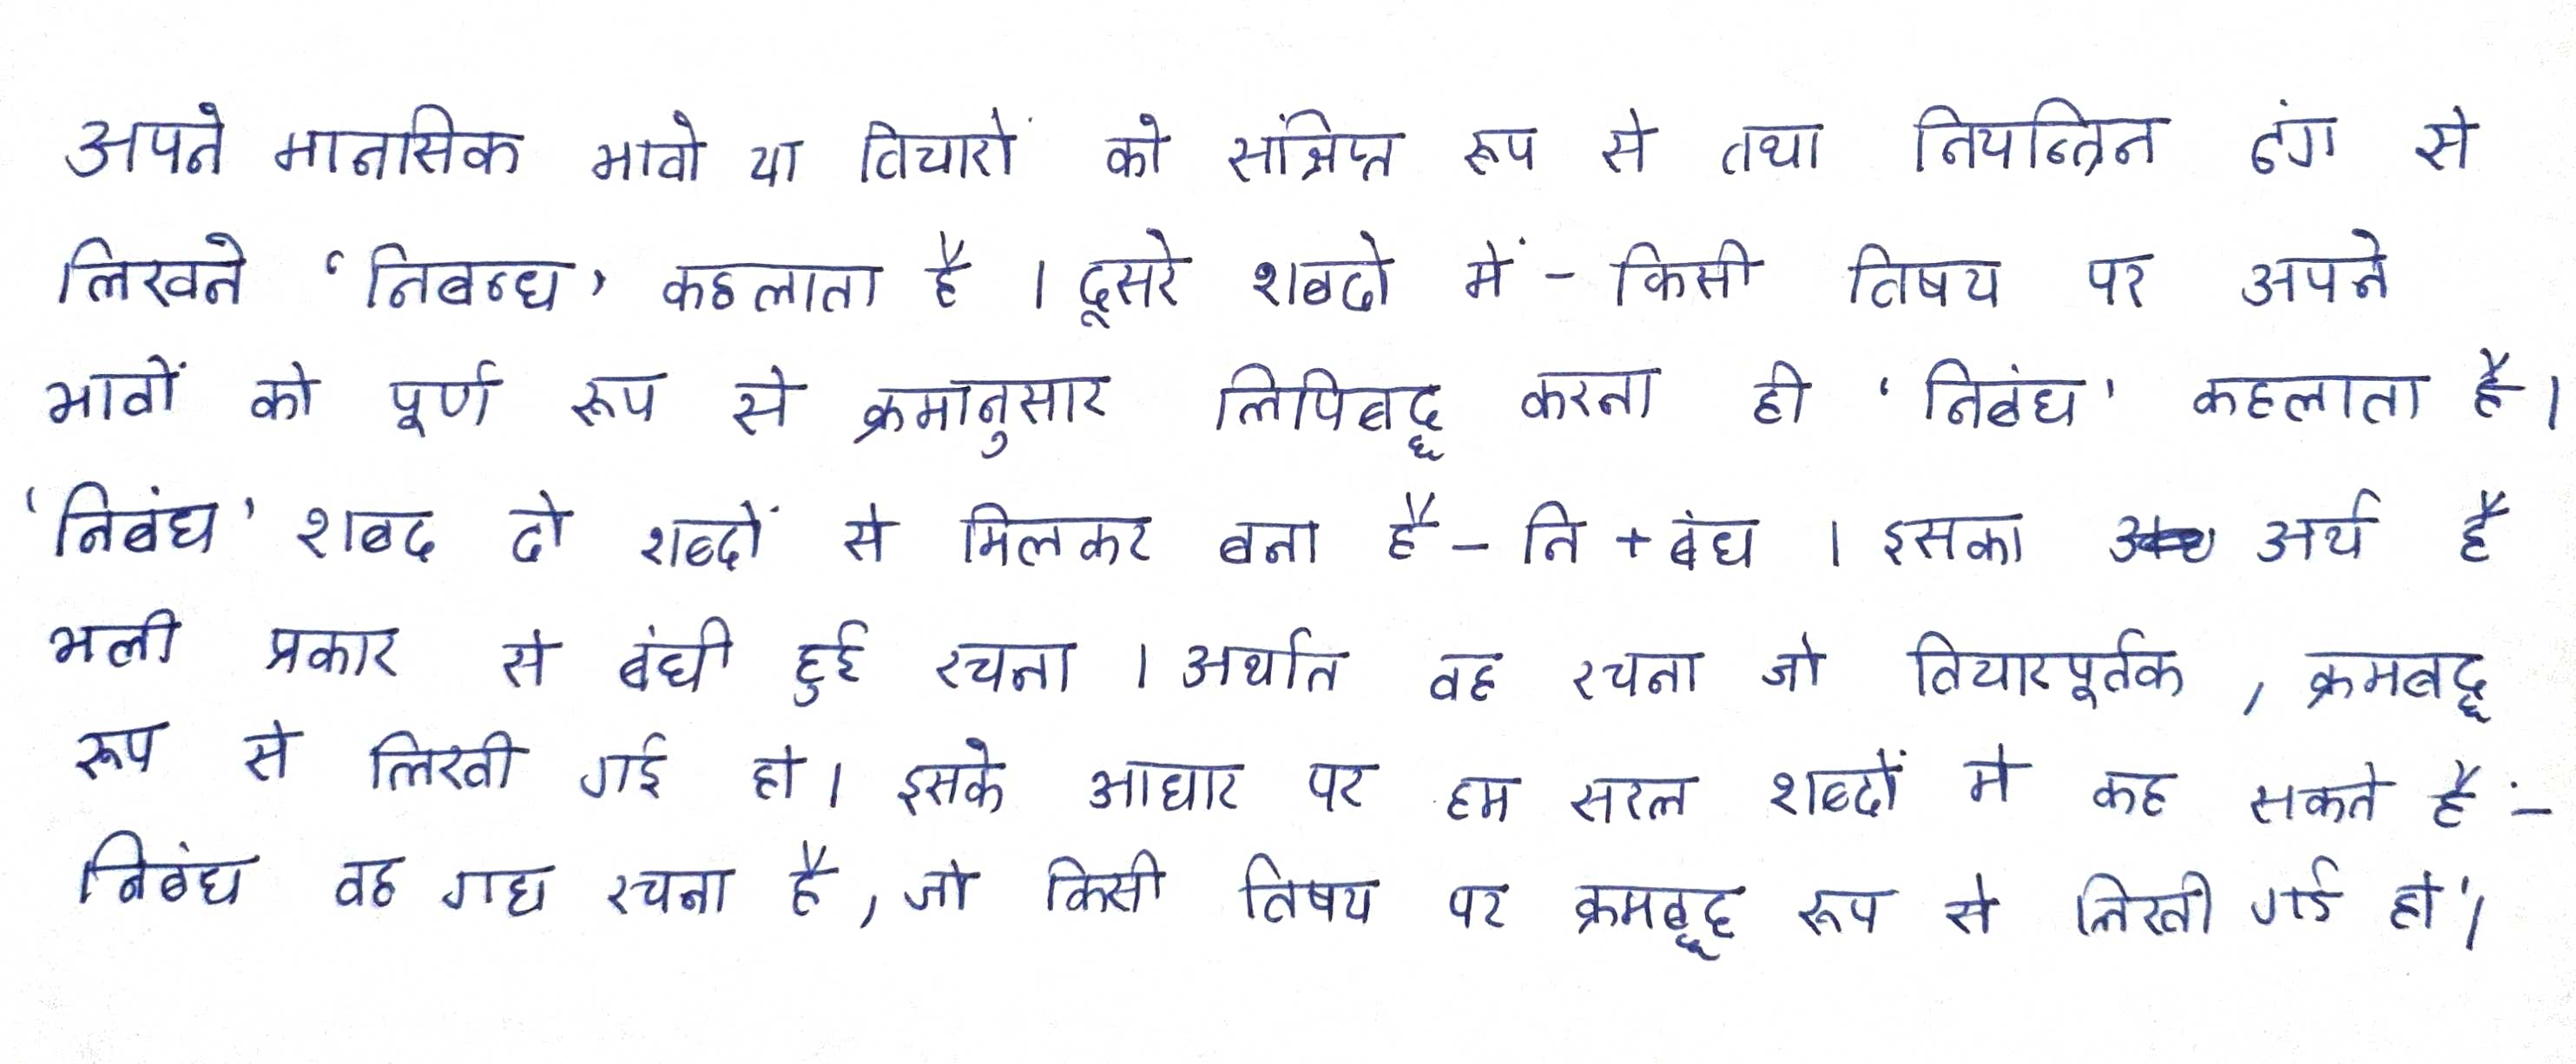 अपने मानसिक भावो या विचारों को संक्षिप्त रूप से तथा नियन्त्रित ढंग से
लिखने ‘निबन्ध’ कहलाता है । दूसरे शबदो में - किसी विषय पर अपने
भावों को पूर्ण रूप से क्रमानुसार लिपिबद्ध करना ही ‘निबंध’ कहलाता है।
‘निबंध’ शबद दो शब्दों से मिलकर बना है – नि + बंध । इसका अर्थ है
भली प्रकार से बंधी हुई रचना । अर्थात वह रचना जो विचारपूर्वक , क्रमबद्ध
रूप से लिखी गई हो। इसके आधार पर हम सरल शब्दों मे कह सकते है :–
निबंध वह गद्य रचना है, जो किसी विषय पर क्रमबद्ध रूप से लिखी गई हो'।